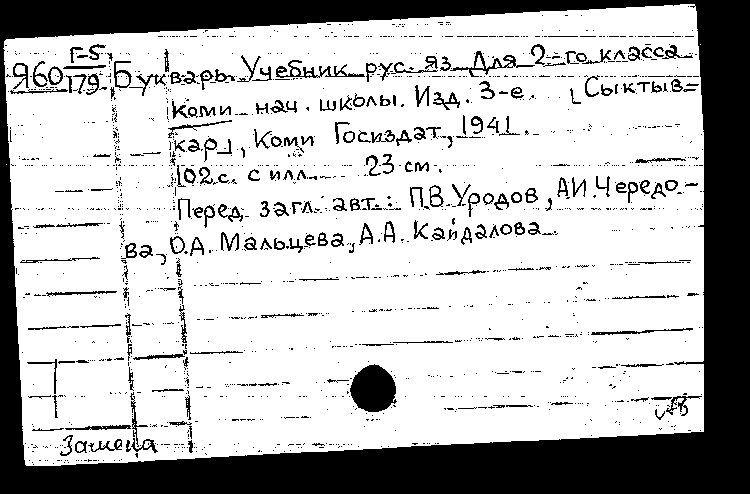 Г-5
Я60 179 Букварь. Учебник рус. яз. Для 2-го класса
коми нач. школы. Изд. 3-е. [Сыктыв=
кар], Коми Госиздат, 1941.
102 с. с илл. 23 см.
Перед загл. авт.: П.В. Уродов, А.И. Чередо-
ва, О.А. Мальцева, А.А. Кайдалова
Замена